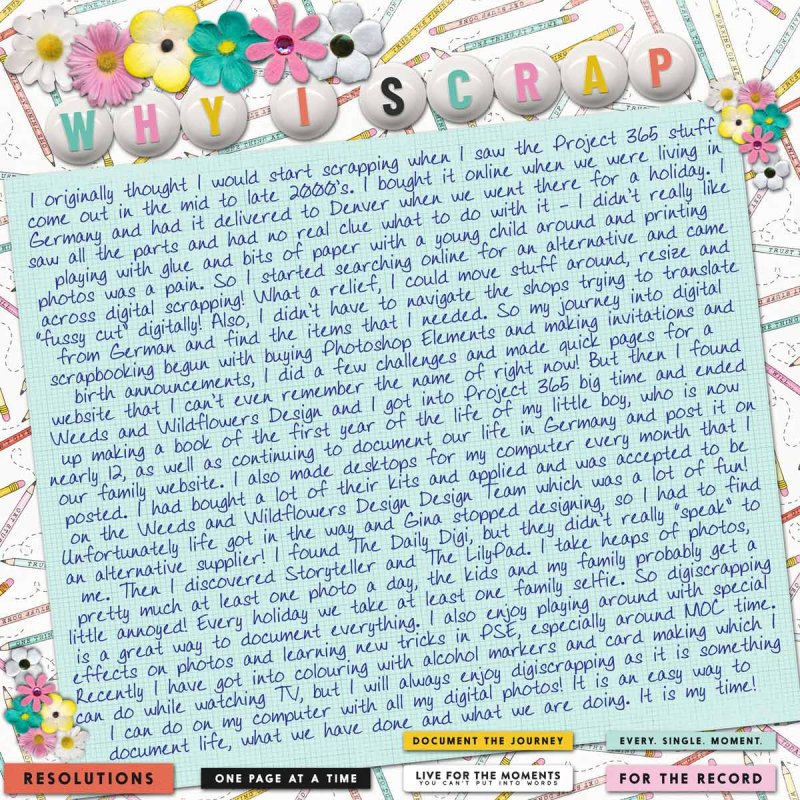 WHY I SCRAP
I originally thought I would start scrapping when I saw the Project 365 stuff
come out in the mid to late 2000's. I bought it online when we were living in
Germany and had it delivered to Denver when we went there for a holiday. I
saw all the parts and had no real clue what to do with it - I didn't really like
playing with glue and bits of paper with a young child around and printing
photos was a pain. So I started searching online for an alternative and came
across digital scrapping! What a relief, I could move stuff around, resize and
"fussy cut" digitally! Also, I didn't have to navigate the shops trying to translate
from German and find the items that I needed. So my journey into digital
scrapbooking begun with buying Photoshop Elements and making invitations and
birth announcements, I did a few challenges and made quick pages for a
website that I can't even remember the name of right now! But then I found
Weeds and Wildflowers Design and I got into Project 365 big time and ended
up making a book of the first year of the life of my little boy, who is now
nearly 12, as well as continuing to document our life in Germany and post it on
our family website. I also made desktops for my computer every month that I
posted. I had bought a lot of their kits and applied and was accepted to be
on the Weeds and Wildflowers Design Design Team which was a lot of fun!
Unfortunately life got in the way and Gina stopped designing, so I had to find
an alternative supplier! I found The Daily Digi, but they didn't really "speak" to
me. Then I discovered Storyteller and The LilyPad. I take heaps of photos,
pretty much at least one photo a day, the kids and my family probably get a
little annoyed! Every holiday we take at least one family selfie. So digiscrapping
is a great way to document everything. I also enjoy playing around with special
effects on photos and learning new tricks in PSE, especially around MOC time.
Recently I have got into colouring with alcohol markers and card making which I
can do while watching TV, but I will always enjoy digiscrapping as it is something
I can do on my computer with all my digital photos! It is an easy way to
document life, what we have done and what we are doing. It is my time!
DOCUMENT THE JOURNEY
EVERY. SINGLE. MOMENT.
RESOLUTIONS
ONE PAGE AT A TIME
LIVE FOR THE MOMENTS
YOU CAN'T PUT INTO WORDS
FOR THE RECORD